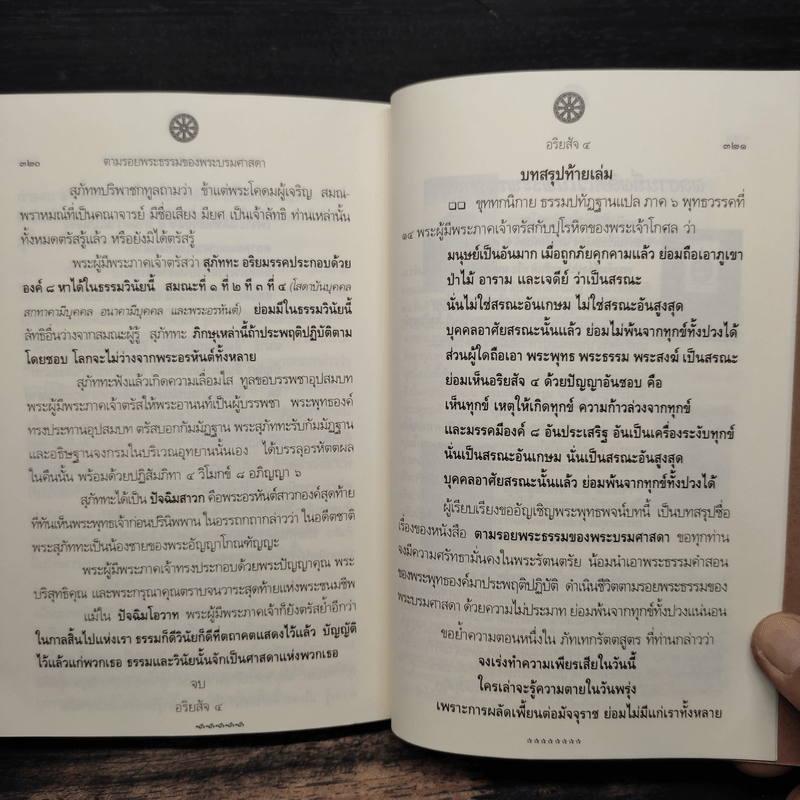 ๓๒๐ ตามรอยพระธรรมของพระบรมศาสดา
สุภัททปริพาชกทูลถามว่า ข้าแต่พระโคดมผู้เจริญ สมณ-
พราหมณ์ที่เป็นคณาจารย์ มีชื่อเสียง มียศ เป็นเจ้าลัทธิ ท่านเหล่านั้น
ทั้งหมดตรัสรู้แล้ว หรือยังมิได้ตรัสรู้
พระผู้มีพระภาคเจ้าตรัสว่า สุภัททะ อริยมรรคประกอบด้วย
องค์ ๘ หาได้ในธรรมวินัยนี้ สมณะที่ ๑ ที่ ๒ ที่ ๓ ที่ ๔ (โสดาบันบุคคล
สกทาคามีบุคคล อนาคามีบุคคล และพระอรหันต์) ย่อมมีในธรรมวินัยนี้
ลัทธิอื่นว่างจากสมณะผู้รู้ สุภัททะ ภิกษุเหล่านี้ถ้าประพฤติปฏิบัติตาม
โดยชอบ โลกจะไม่ว่างจากพระอรหันต์ทั้งหลาย
สุภัททะฟังแล้วเกิดความเลื่อมใส ทูลขอบรรพชาอุปสมบท
พระผู้มีพระภาคเจ้าตรัสให้พระอานนท์เป็นผู้บรรพชา พระพุทธองค์
ทรงประทานอุปสมบท ตรัสบอกกัมมัฏฐาน พระสุภัททะรับกัมมัฏฐาน
และอธิษฐานจงกรมในบริเวณอุทยานนั้นเอง ได้บรรลุอรหัตตผล
ในคืนนั้น พร้อมด้วยปฏิสัมภิทา ๔ วิโมกข์ ๘ อภิญญา ๖
สุภัททะได้เป็น ปัจฉิมสาวก คือพระอรหันต์สาวกองค์สุดท้าย
ที่ทันเห็นพระพุทธเจ้าก่อนปรินิพพาน ในอรรถกถากล่าวว่า ในอดีตชาติ
พระสุภัททะเป็นน้องชายของพระอัญญาโกณฑัญญะ
พระผู้มีพระภาคเจ้าทรงประกอบด้วยพระปัญญาคุณ พระ
บริสุทธิคุณ และพระกรุณาคุณตราบจนวาระสุดท้ายแห่งพระชนมชีพ
แม้ใน ปัจฉิมโอวาท พระผู้มีพระภาคเจ้าก็ยังตรัสย้ำอีกว่า
ในกาลสิ้นไปแห่งเรา ธรรมก็ดีวินัยก็ดีที่ตถาคตแสดงไว้แล้ว บัญญัติ
ไว้แล้วแก่พวกเธอ ธรรมและวินัยนั้นจักเป็นศาสดาแห่งพวกเธอ
จบ
อริยสัจ ๔
อริยสัจ ๔ ๓๒๑
บทสรุปท้ายเล่ม
❑❑ ขุททกนิกาย ธรรมปทัฏฐานแปล ภาค ๖ พุทธวรรคที่
๑๔ พระผู้มีพระภาคเจ้าตรัสกับปุโรหิตของพระเจ้าโกศล ว่า
มนุษย์เป็นอันมาก เมื่อถูกภัยคุกคามแล้ว ย่อมถือเอาภูเขา
ป่าไม้ อาราม และเจดีย์ ว่าเป็นสรณะ
นั่นไม่ใช่สรณะอันเกษม ไม่ใช่สรณะอันสูงสุด
บุคคลอาศัยสรณะนั้นแล้ว ย่อมไม่พ้นจากทุกข์ทั้งปวงได้
ส่วนผู้ใดถือเอา พระพุทธ พระธรรม พระสงฆ์ เป็นสรณะ
ย่อมเห็นอริยสัจ ๔ ด้วยปัญญาอันชอบ คือ
เห็นทุกข์ เหตุให้เกิดทุกข์ ความก้าวล่วงจากทุกข์
และมรรคมีองค์ ๘ อันประเสริฐ อันเป็นเครื่องระงับทุกข์
นั่นเป็นสรณะอันเกษม นั่นเป็นสรณะอันสูงสุด
บุคคลอาศัยสรณะนั้นแล้ว ย่อมพ้นจากทุกข์ทั้งปวงได้
ผู้เรียบเรียงขออัญเชิญพระพุทธพจน์บทนี้ เป็นบทสรุปชื่อ
เรื่องของหนังสือ ตามรอยพระธรรมของพระบรมศาสดา ขอทุกท่าน
จงมีความศรัทธามั่นคงในพระรัตนตรัย น้อมนำเอาพระธรรมคำสอน
ของพระพุทธองค์มาประพฤติปฏิบัติ ดำเนินชีวิตตามรอยพระธรรมของ
พระบรมศาสดา ด้วยความไม่ประมาท ย่อมพ้นจากทุกข์ทั้งปวงแน่นอน
ขอย้ำความตอนหนึ่งใน ภัทเทกรัตตสูตร ที่ท่านกล่าวว่า
จงเร่งทำความเพียรเสียในวันนี้
ใครเล่าจะรู้ความตายในวันพรุ่ง
เพราะการผลัดเพี้ยนต่อมัจจุราช ย่อมไม่มีแก่เราทั้งหลาย
☆☆☆☆☆☆☆☆